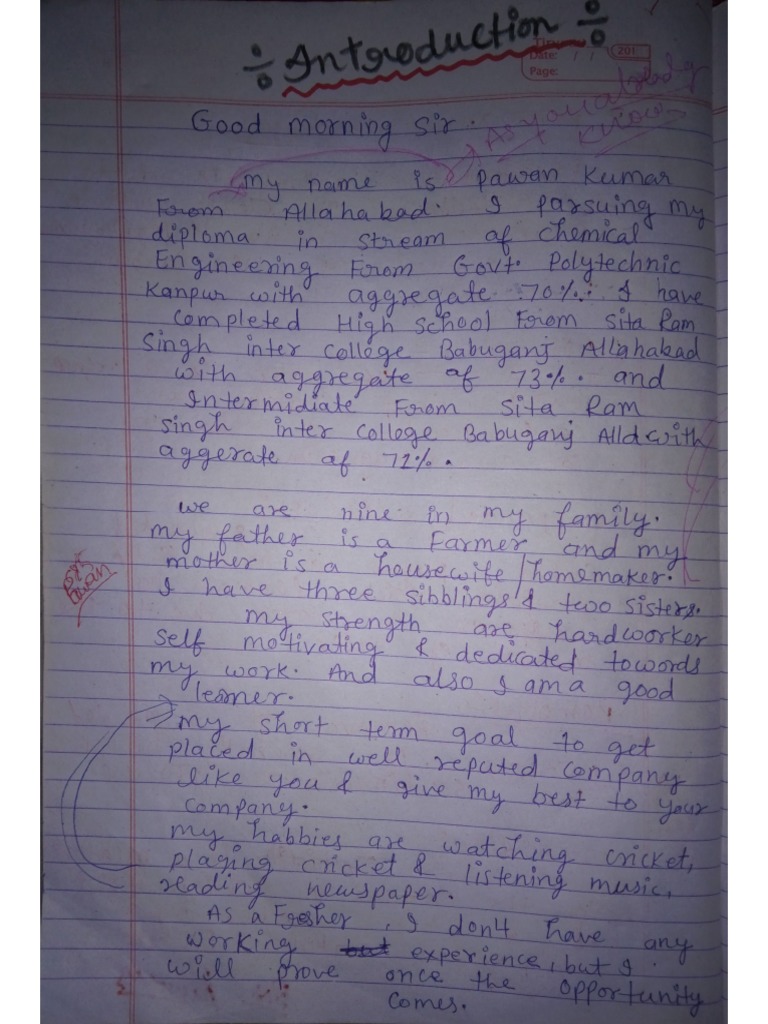 ÷ Introduction ÷
Date: / / 201
Page:
Good morning Sir.
As you already
know
my name is Pawan Kumar
From Allahabad. I parsuing my
diploma in stream of chemical
Engineering From Govt. Polytechnic
Kanpur with aggregate 70%. I have
completed High School From Sita Ram
Singh inter college Babuganj Allahabad
with aggregate of 73%. and
Intermidiate From Sita Ram
singh inter college Babuganj Alld with
aggerate of 72%.
we are nine in my family.
my father is a Farmer and my
mother is a housewife/homemaker.
I have three sibblings & two sisters.
my strength are hardworker
self motivating & dedicated towords
my work. And also I am a good
learner.
my short term goal to get
placed in well reputed company
like you & give my best to your
company.
my habbies are watching cricket,
playing cricket & listening music,
reading newspaper.
As a Fresher, I don4 have any
working but experience, but I
will prove once the opportunity
comes.